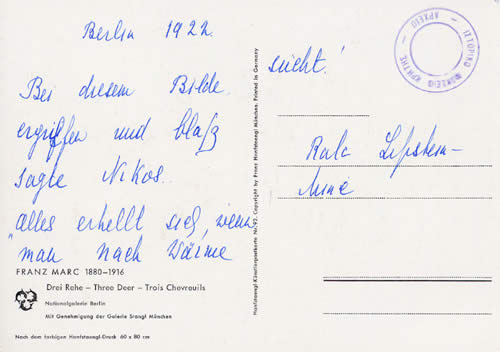 Berlin 1922.
Bei diesem Bilde
ergriffen und blaß
sagte Nikos..
"alles erhellt sich, wenn
man nach Wärme
sucht!
Rala Lipstein-
Miné
FRANZ MARC 1880–1916
Drei Rehe – Three Deer – Trois Chevreuils
Nationalgalerie Berlin
Mit Genehmigung der Galerie Stangl München
Nach dem farbigen Hanfstaengl-Druck 60 x 80 cm
Hanfstaengl-Künstlerpostkarte Nr. 92. Copyright by Franz Hanfstaengl München. Printed in Germany
ΙΣΤΟΡΙΚΟ ΜΟΥΣΕΙΟ ΚΡΗΤΗΣ – ΑΡΧΕΙΟ –